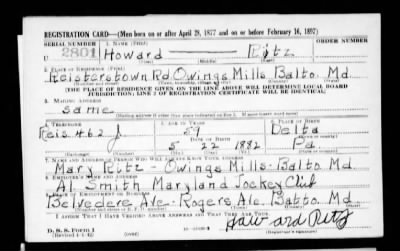 REGISTRATION CARD—(Men born on or after April 28, 1877 and on or before February 16, 1897)
SERIAL NUMBER 1. NAME (Print) ORDER NUMBER
U 2801 Howard Ritz
(First) (Middle) (Last)
2. PLACE OF RESIDENCE (Print)
Reisterstown Rd Owings Mills Balto. Md.
[THE PLACE OF RESIDENCE GIVEN ON THE LINE ABOVE WILL DETERMINE LOCAL BOARD
JURISDICTION; LINE 2 OF REGISTRATION CERTIFICATE WILL BE IDENTICAL]
3. MAILING ADDRESS
same
4. TELEPHONE 5. AGE IN YEARS 6. PLACE OF BIRTH
Reis. 462 J 59 Delta
DATE OF BIRTH
5 22 1882 Pa.
7. NAME AND ADDRESS OF PERSON WHO WILL ALWAYS KNOW YOUR ADDRESS
Mary Ritz - Owings Mills - Balto. Md.
8. EMPLOYER'S NAME AND ADDRESS
Al Smith Maryland Jockey Club
Belvedere Ave - Rogers Ave. Balto. Md
I AFFIRM THAT I HAVE VERIFIED ABOVE ANSWERS AND THAT THEY ARE TRUE.
Howard Ritz
D. S. S. Form 1
(Revised 4-1-42) (over)